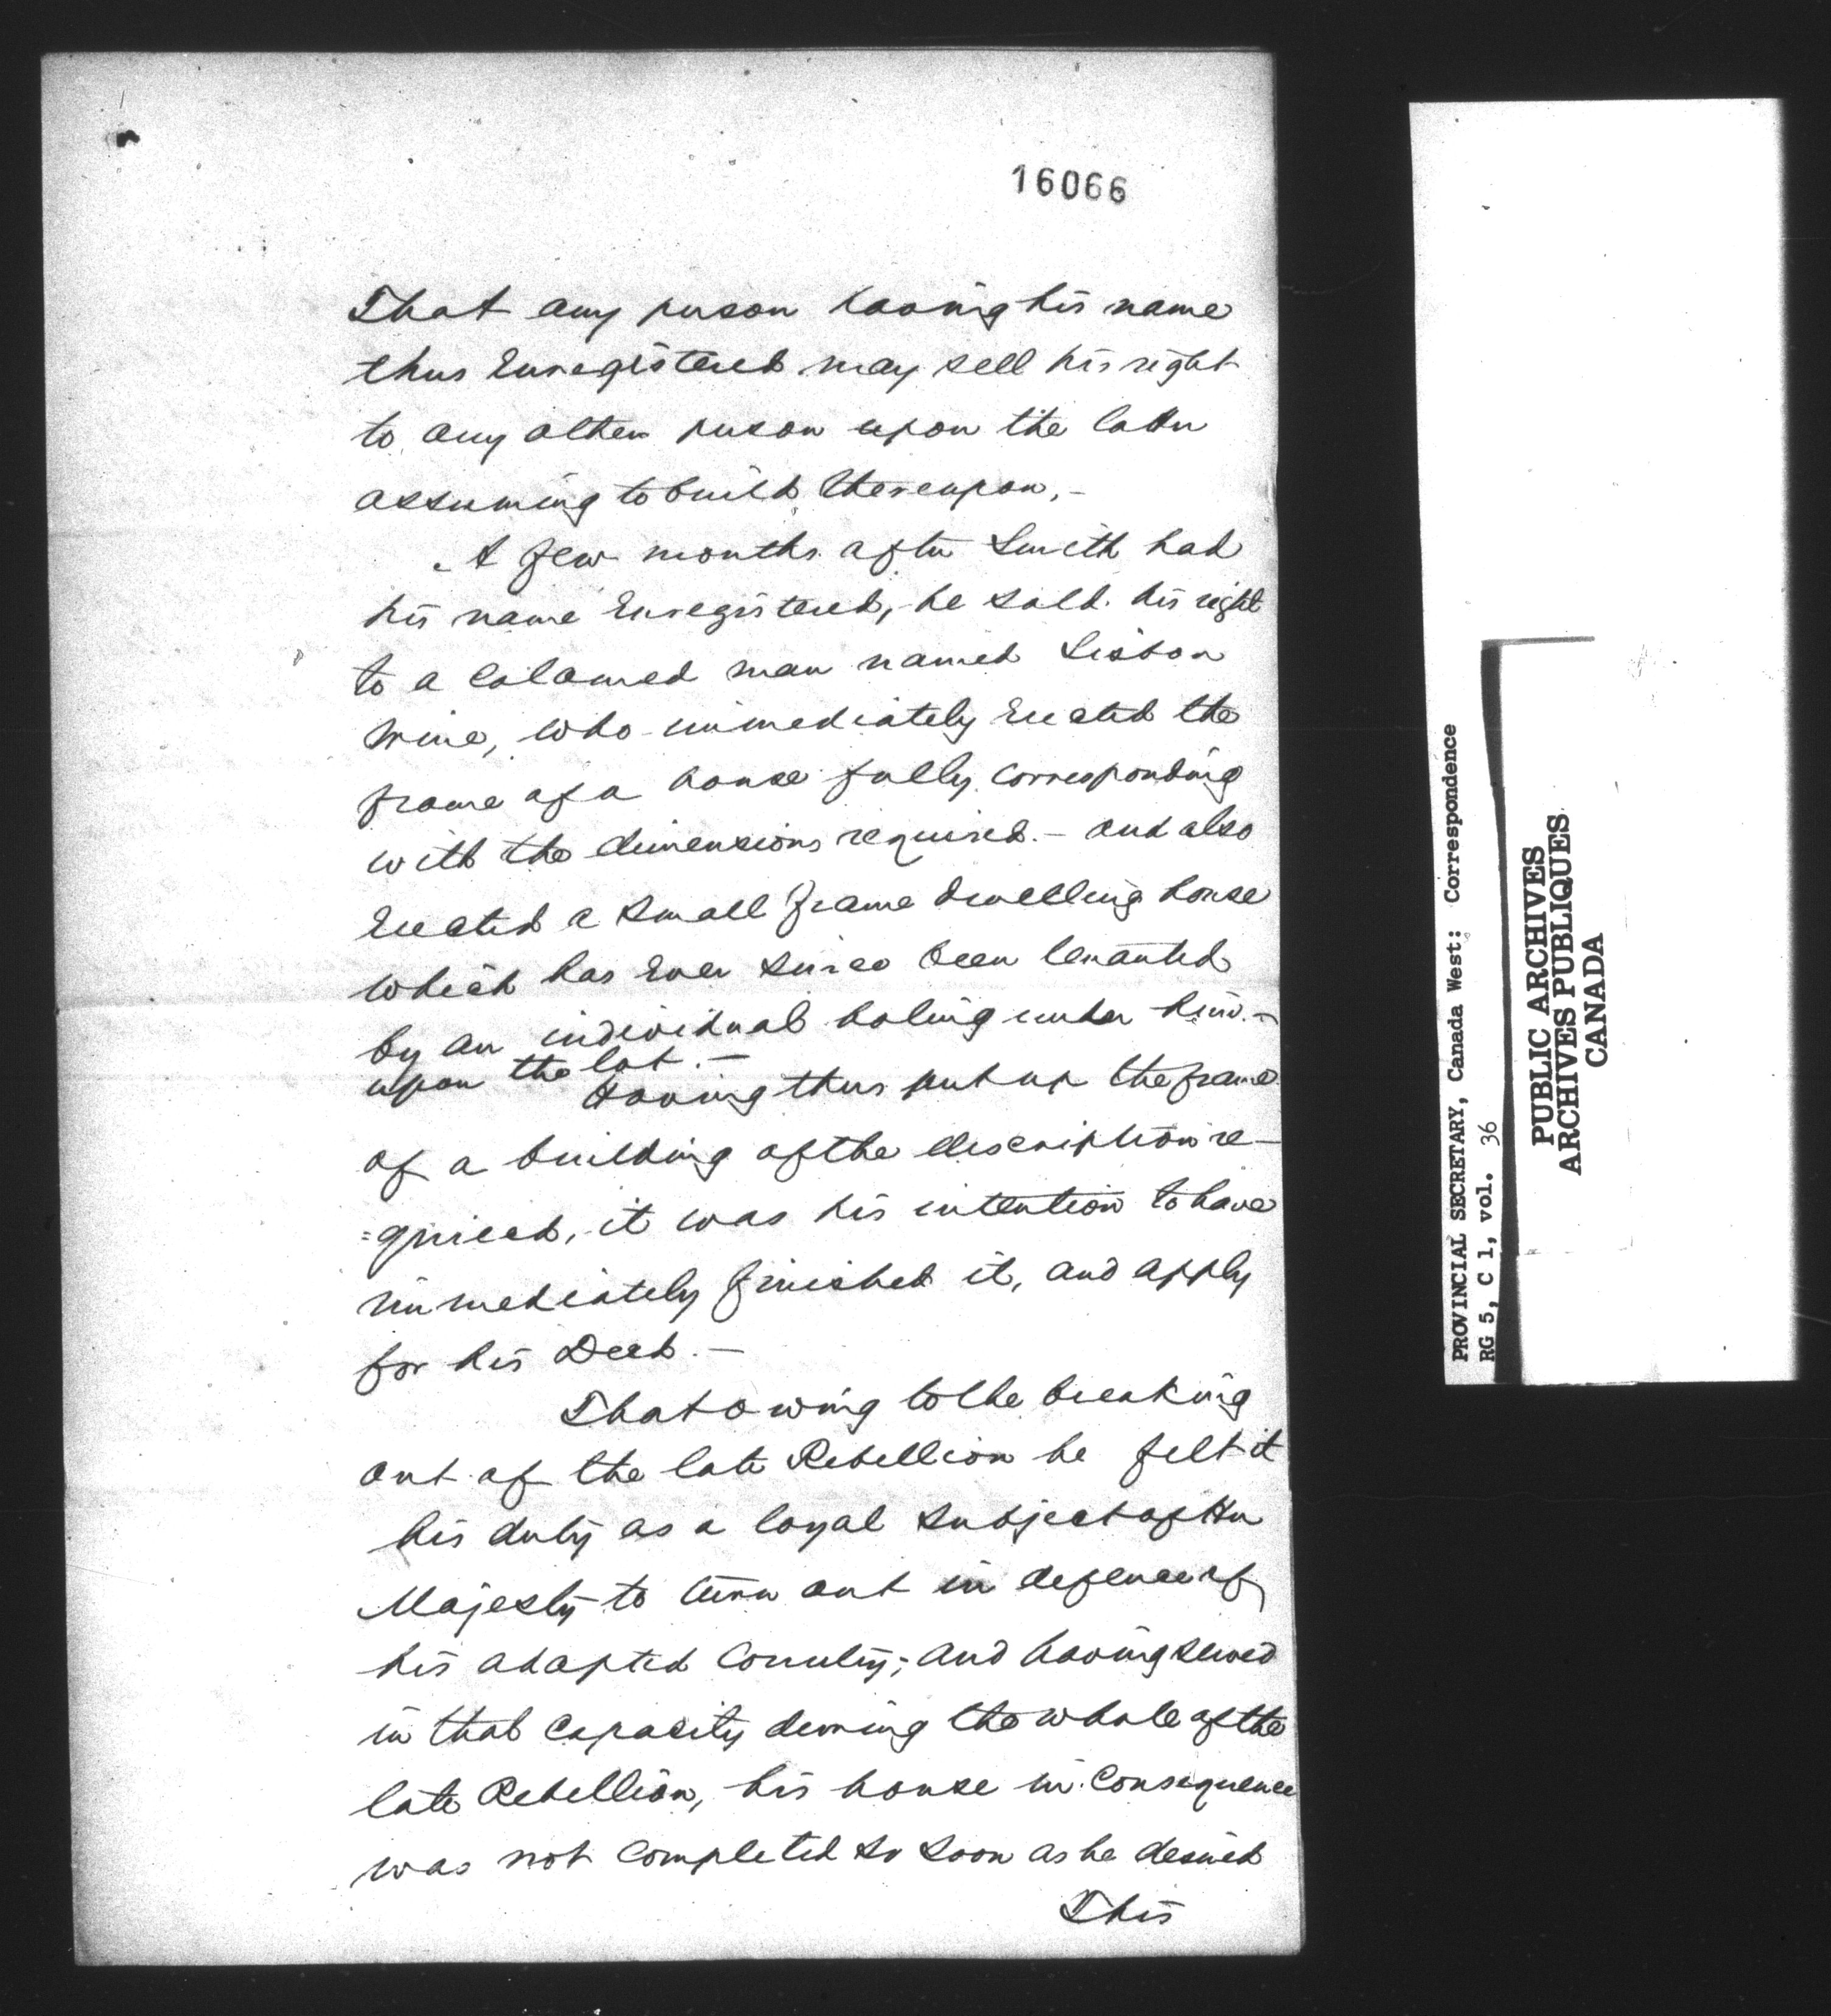 16066
That any person having his name
thus Enregistered may sell his right
to any other person upon the latter
assuming to build thereupon, -
A few months after Smith had
his name Enregistered, he sold his right
to a Coloured man named Lisbon
Wine, who immediately Erected the
frame of a house fully corresponding
with the dimensions required. - and also
Erected a small frame dwelling house
which has Ever since been tenanted
by an individual holing under him. -
upon the lot. -
Having thus put up the frame
of a building of the description re-
=quired, it was his intention to have
immediately finished it, and apply
for his Deed. -
That owing to the breaking
out of the late Rebellion he felt it
his duty as a loyal subject of Her
Majesty to turn out in defence of
his adopted Country; and having served
in that capacity during the whole of the
late Rebellion, his house in Consequence
was not Completed so soon as he desired
This
PROVINCIAL SECRETARY, Canada West: Correspondence
RG 5, C 1, vol. 36
PUBLIC ARCHIVES
ARCHIVES PUBLIQUES
CANADA